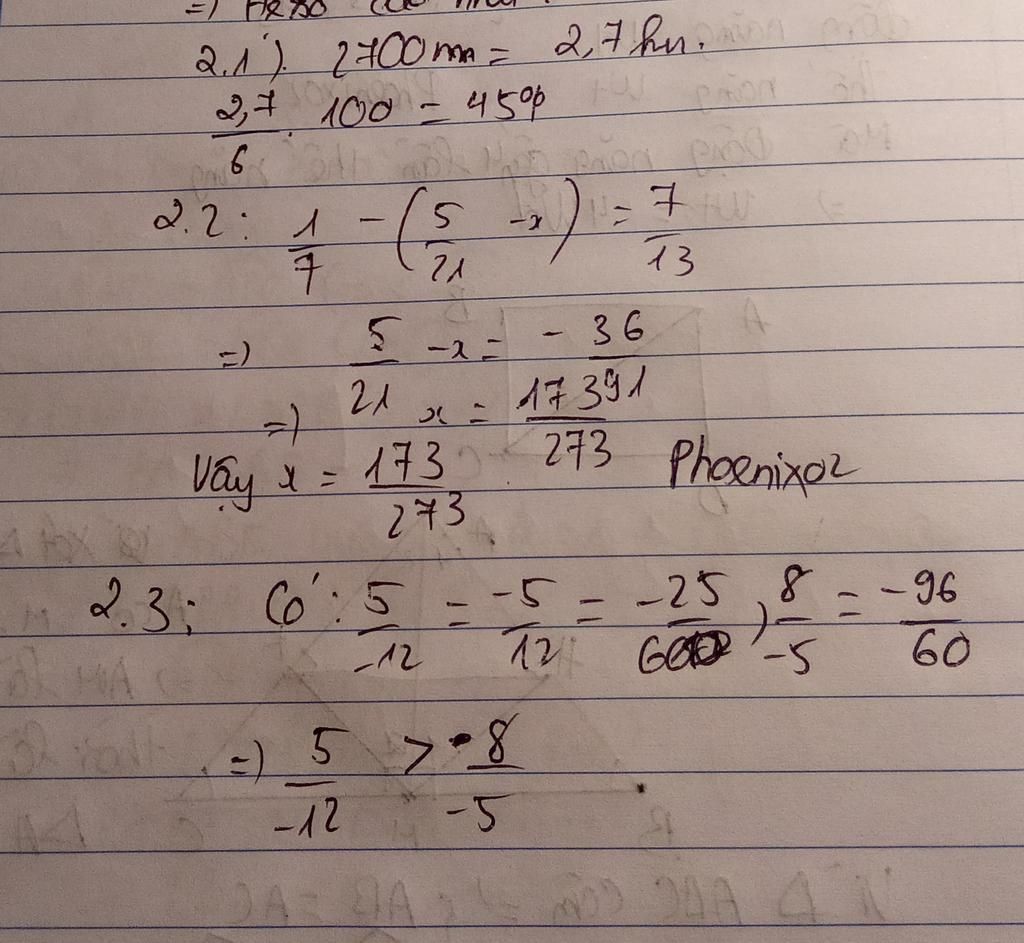 2.1). 2700m = 2,7 km.
2,7/6 . 100 = 45%
2.2: 1/7 - (5/21 - x) = 7/13
=) 5/21 - x = -36/91
=) x = 173/273
Vậy x = 173/273 Phoenixoz
2.3; Có: 5/-12 = -5/12 = -25/60, 8/-5 = -96/60
=) 5/-12 > 8/-5